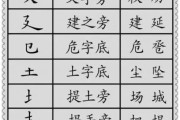 廴 建之旁 建 延
㔾 危字底 危 卺
土 土字底 尘 坠
土 提土旁 场 城